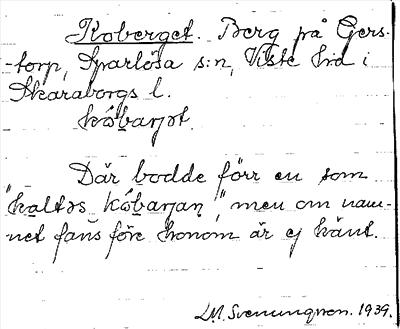 Koberget. Berg på Gers-
-torp, Sparlösa s:n, Viste hd i
Skaraborgs l.
kóbarjət.
Där bodde förr en som
"kaltəs kóbarjaṇ", men om nam-
net fans före honom är ej känt.
L.M. Svenungsson. 1939.